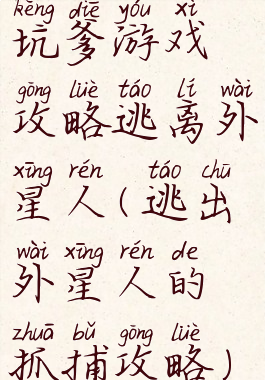 kēng diē yóu xì
坑爹游戏
gōng lüè táo lí wài
攻略逃离外
xīng rén táo chū
星人(逃出
wài xīng rén de
外星人的
zhuā bǔ gōng lüè
抓捕攻略)